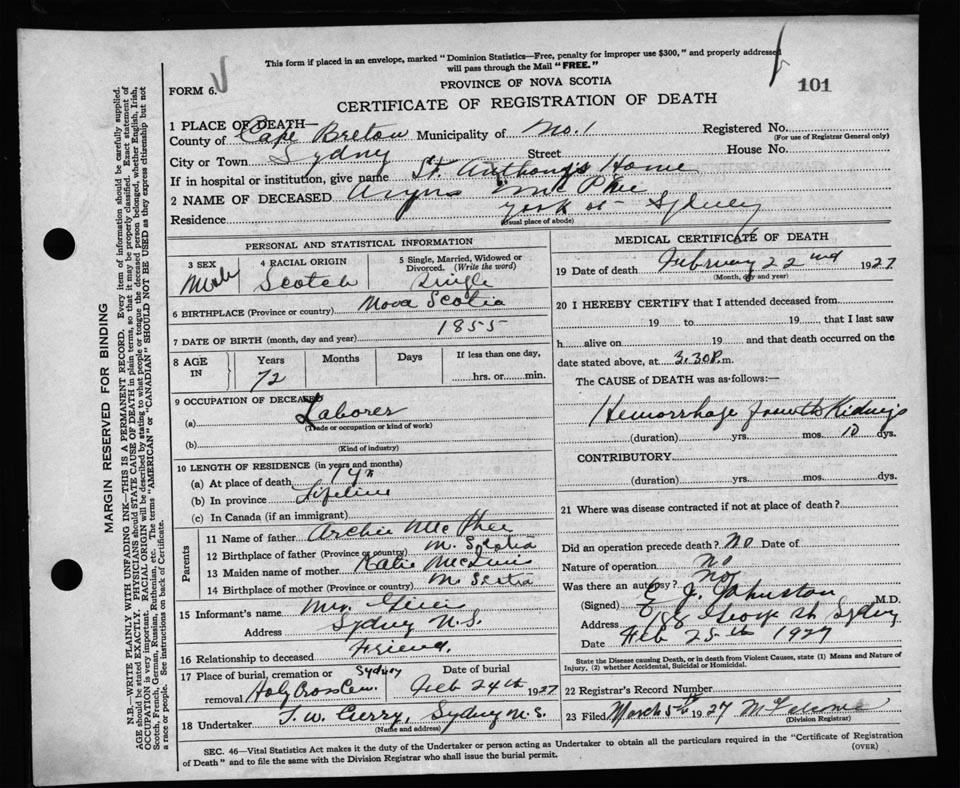 This form if placed in an envelope, marked "Dominion Statistics—Free, penalty for improper use $300," and properly addressed
will pass through the Mail "FREE."
PROVINCE OF NOVA SCOTIA
101
FORM 6.
CERTIFICATE OF REGISTRATION OF DEATH
1 PLACE OF DEATH—
County of Cape Breton Municipality of No. 1 Registered No.
(For use of Registrar General only)
City or Town Sydney Street House No.
If in hospital or institution, give name St. Anthony's Home
2 NAME OF DECEASED Angus McPhee
Residence York St Sydney
(Usual place of abode)
PERSONAL AND STATISTICAL INFORMATION
3 SEX Male
4 RACIAL ORIGIN Scotch
5 Single, Married, Widowed or
Divorced. (Write the word)
Single
6 BIRTHPLACE (Province or country) Nova Scotia
7 DATE OF BIRTH (month, day and year) 1855
8 AGE IN Years 72 Months Days If less than one day,
hrs. or min.
9 OCCUPATION OF DECEASED
(a) Laborer
(Trade or occupation or kind of work)
(b)
(Kind of industry)
10 LENGTH OF RESIDENCE (in years and months)
(a) At place of death 1 yr
(b) In province Lifetime
(c) In Canada (if an immigrant)
Parents
11 Name of father Archie McPhee
12 Birthplace of father (Province or country) N. Scotia
13 Maiden name of mother Katie
14 Birthplace of mother (Province or country) N. Scotia
15 Informant's name Mrs.
Address Sydney N.S.
16 Relationship to deceased Friend
17 Place of burial, cremation or removal Holy Cross Cem. Sydney
Date of burial Feb 24th 1927
18 Undertaker T. W. Curry, Sydney N.S.
(Name and address)
MEDICAL CERTIFICATE OF DEATH
19 Date of death February 22nd 1927
(Month, day and year)
20 I HEREBY CERTIFY that I attended deceased from
19 to 19, that I last saw
h alive on 19 and that death occurred on the
date stated above, at 3.30 P. m.
The CAUSE of DEATH was as follows:—
Hemorrhage from the Kidneys
(duration) yrs. mos. 10 dys.
CONTRIBUTORY
(duration) yrs. mos. dys.
21 Where was disease contracted if not at place of death?
Did an operation precede death? No Date of
Nature of operation No
Was there an autopsy? No
(Signed) E. J. Johnston M.D.
Address 188 George St Sydney
Date Feb 25th 1927
State the Disease causing Death, or in death from Violent Causes, state (1) Means and Nature of
Injury, (2) whether Accidental, Suicidal or Homicidal.
22 Registrar's Record Number
23 Filed March 5th 1927
(Division Registrar)
SEC. 46—Vital Statistics Act makes it the duty of the Undertaker or person acting as Undertaker to obtain all the particulars required in the "Certificate of Registration
of Death" and to file the same with the Division Registrar who shall issue the burial permit.
(OVER)
MARGIN RESERVED FOR BINDING
N.B.—WRITE PLAINLY WITH UNFADING INK—THIS IS A PERMANENT RECORD. Every item of information should be carefully supplied.
AGE should be stated EXACTLY. PHYSICIANS should STATE CAUSE OF DEATH in plain terms, so that it may be properly classified. Exact statement of
OCCUPATION is very important. RACIAL ORIGIN will be described by stating to what people or tongue the deceased person belonged, whether English, Irish,
Scotch, French, German, Russian, Ruthenian, etc. The terms "AMERICAN" or "CANADIAN" SHOULD NOT BE USED as they express citizenship but not
a race or people. See instructions on back of Certificate.